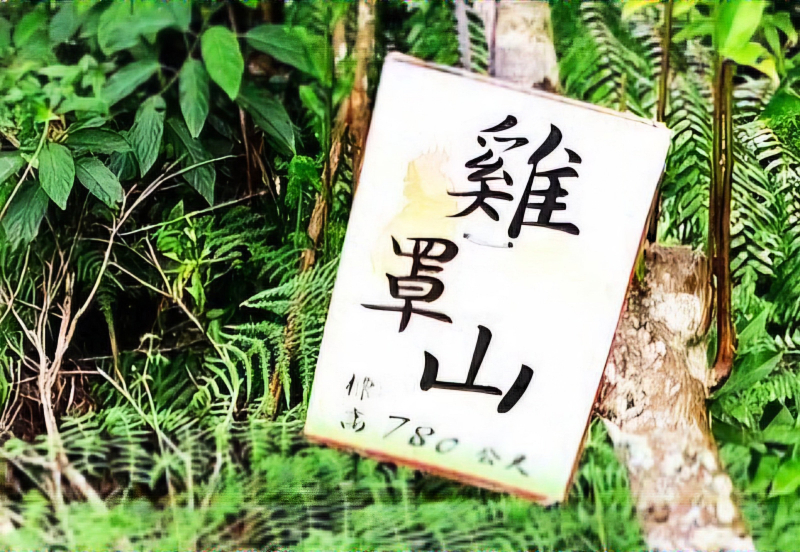 雞罩山
標高 780 公尺